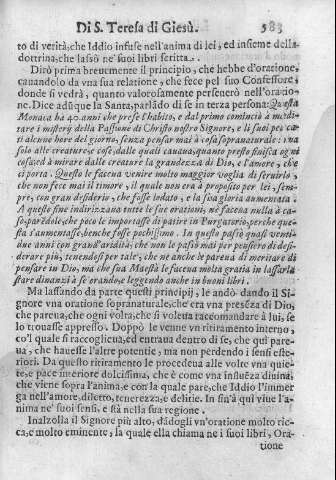 Di S. Teresa di Giesù. 583
to di verità, che Iddio infuse nell'anima di lei, ed insieme della
dottrina, che lasiò ne' suoi libri scritta.
Dirò prima breuemente il principio, che hebbe d'oratione,
cauandolo da vna sua relatione, che fece pel suo Confessore,
donde si vedrà, quanto valorosamente perseuerò nell'oratio-
ne. Dice adũque la Santa, parlãdo di se in terza persona: Questa
Monaca hà 40. anni che prese l'habito, e dal primo cominciò à medi-
tare i misterÿ della Passione di Christo nostro Signore, e li suoi pec-
ti alcune hore del giorno, senza pensar mai à cosa sopranaturale: ma
solo alle creature, e cose, dalle quali cauaua, quanto presto finisca ogni
cosa; ed à mirare dalle creature la grandezza di Dio, e l'amore, che
ci porta. Questo le faceua venire molto maggior voglia di seruirlo,
che non fece mai il timore, il quale non era à proposito per lei, sem-
pre, con gran desiderio, che fosse lodato, e la sua gloria aumentata.
A questo fine indirizzaua tutte le sue orationi, nè faceua nulla à ca-
so, parẽdole, che importasse poco il patire in Purgatorio, perche que-
sta s'aumentasse, benche fosse pochissimo. In questo passò quasi venti-
due anni con grand'aridità, che non le passò mai per pensiero di desi-
derare più, tenendosi per tale, che nè anche le pareua di meritare di
pensare in Dio, ma che sua Maestà le faceua molta gratia in lassarla
stare dinanzi à se orando, e leggendo anche in buoni libri.
Ma lassando da parte questi principij, le andò dando il Si-
gnore vna oratione sopranaturale, che era vna presẽza di Dio,
che pareua, che ogni volta, che si voleua raccomandare à lui, se
lo trouasse appresso. Doppò le venne vn ritiramento interno,
co'l quale si raccoglieua, ed entraua dentro di se, che qui pare-
ua, che hauesse l'altre potentie, ma non perdendo i sensi este-
riori. Da questo ritiramento le procedeua alle volte vna quie-
te, e pace interiore dolcissima, che è come vna influẽza diuina,
che viene sopra l'anima, e con la quale pare, che Iddio l'immer-
ga nell'amore, diletto, tenerezza, e delitie. In sin'à qui viue l'a-
nima ne' suoi sensi, e stà nella sua regione.
Inalzolla il Signore più alto, dãdogli vn'oratione molto ric-
ca, e molto eminente, la quale ella chiama ne i suoi libri, Ora-
tione